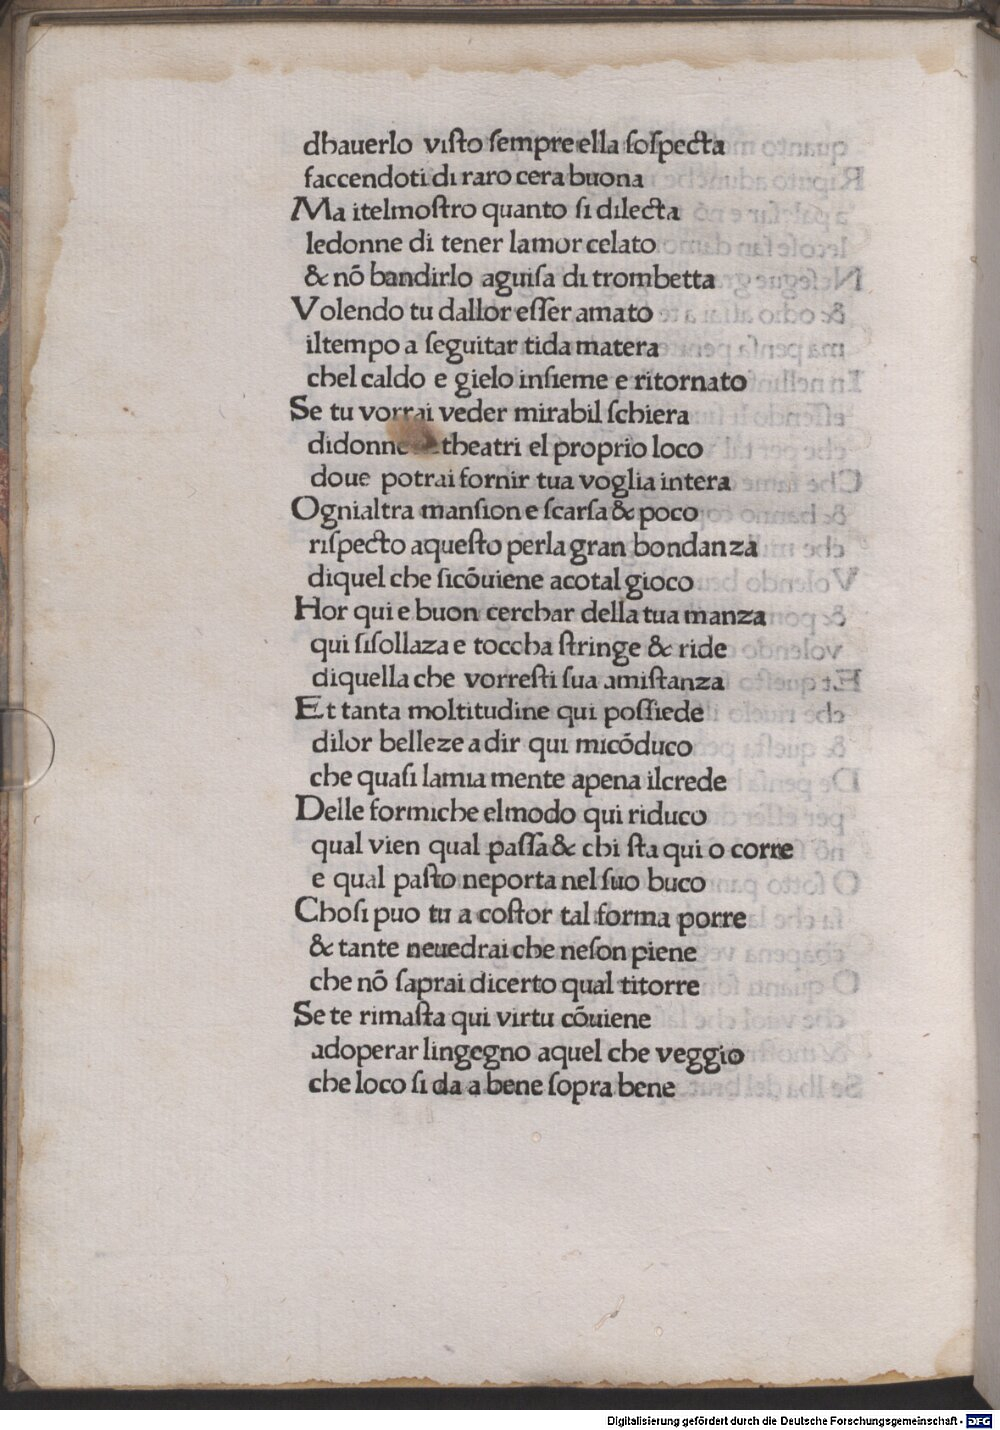 dhauerlo viſto ſempre ella ſoſpecta
faccendoti di raro cera buona
Ma itelmoſtro quanto ſi dilecta
ledonne di tener lamor celato
& nō bandirlo aguiſa di trombetta
Volendo tu dallor eſſer amato
iltempo a ſeguitar tida matera
chel caldo e gielo inſieme e ritornato
Se tu vorrai veder mirabil ſchiera
didonne theatri el proprio loco
doue potrai fornir tua voglia intera
Ognialtra manſion e ſcarſa & poco
riſpecto aqueſto perla gran bondanza
diquel che ſicōuiene acotal gioco
Hor qui e buon cerchar della tua manza
qui ſiſollaza e toccha ſtringe & ride
diquella che vorreſti ſua amiſtanza
Et tanta moltitudine qui poſſiede
dilor belleze a dir qui micōduco
che quaſi lamia mente apena ilcrede
Delle formiche elmodo qui riduco
qual vien qual paſſa & chi ſta qui o corre
e qual paſto neporta nel ſuo buco
Choſi puo tu a coſtor tal forma porre
& tante neuedrai che neſon piene
che nō ſaprai dicerto qual titorre
Se te rimaſta qui virtu cōuiene
adoperar lingegno aquel che veggio
che loco ſi da a bene ſopra bene
Digitalisierung gefördert durch die Deutsche Forschungsgemeinschaft - DFG